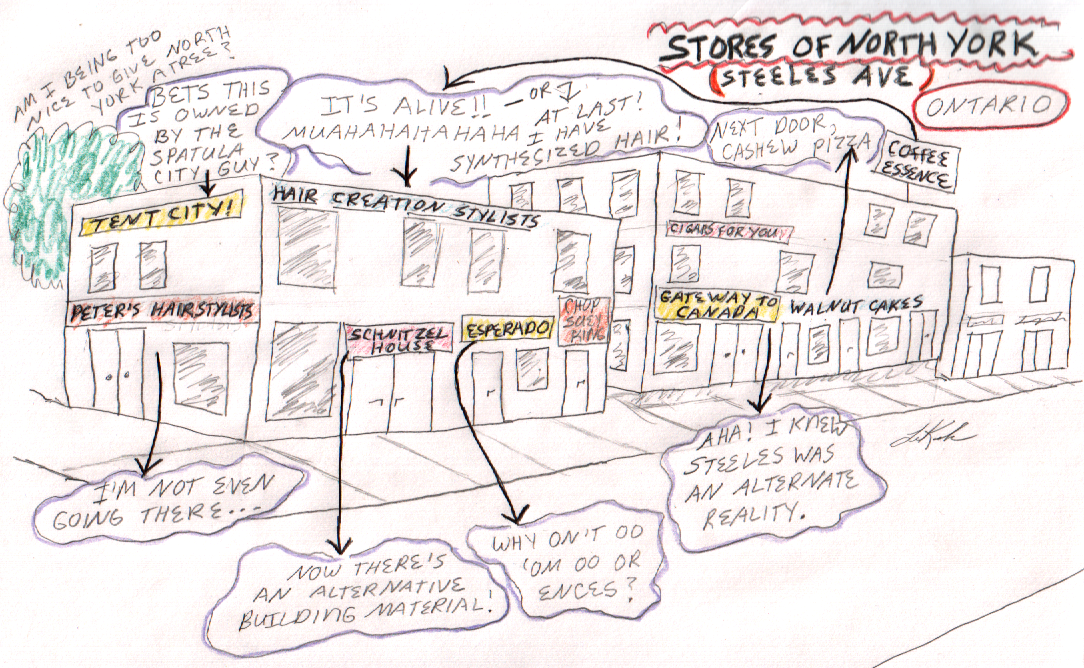 STORES OF NORTH YORK
STEELES AVE
ONTARIO
AM I BEING TOO
NICE TO GIVE NORTH
YORK A TREE?
BETS THIS
IS OWNED
BY THE
SPATULA
CITY GUY?
IT'S ALIVE!! — OR I
MUAHAHAHAHAHA AT LAST!
I HAVE
SYNTHESIZED HAIR!
NEXT DOOR,
CASHEW PIZZA
COFFEE
ESSENCE
TENT CITY!
HAIR CREATION STYLISTS
CIGARS FOR YOU
PETER'S HAIRSTYLISTS
SCHNITZEL
HOUSE
ESPERADO
CHOP
SUEY
KING
GATEWAY TO
CANADA
WALNUT CAKES
I'M NOT EVEN
GOING THERE...
NOW THERE'S
AN ALTERNATIVE
BUILDING MATERIAL!
WHY ON'T OO
'OM OO OR
ENCES?
AHA! I KNEW
STEELES WAS
AN ALTERNATE
REALITY.